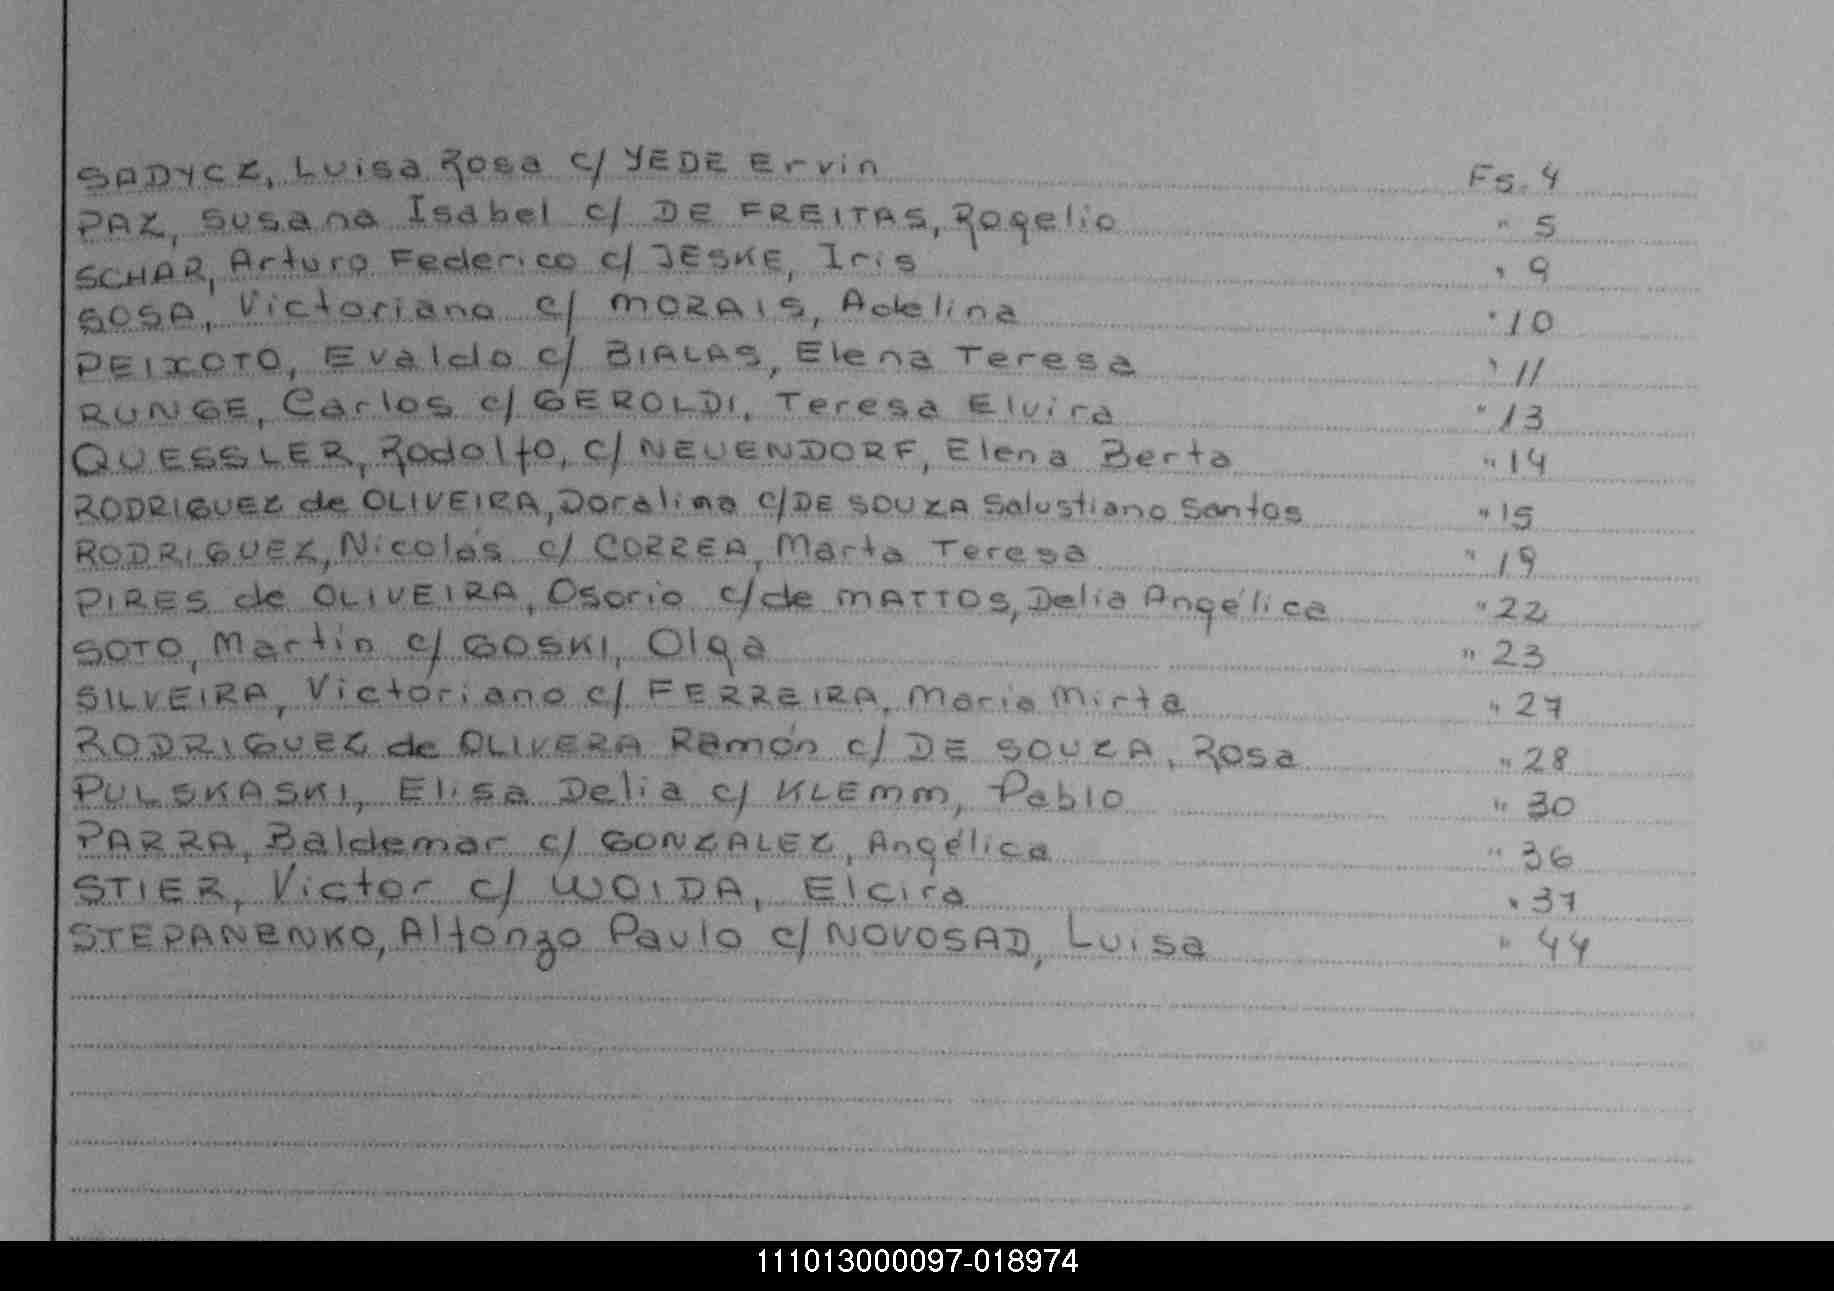 SADYCZ, Luisa Rosa c/ YEDE Ervin Fs. 4
PAZ, Susana Isabel c/ DE FREITAS, Rogelio " 5
SCHAR, Arturo Federico c/ JESKE, Iris " 9
SOSA, Victoriano c/ MORAIS, Adelina " 10
PEIXOTO, Evaldo c/ BIALAS, Elena Teresa " 11
RUNGE, Carlos c/ GEROLDI, Teresa Elvira " 13
QUESSLER, Rodolfo, c/ NEUENDORF, Elena Berta " 14
RODRIGUEZ de OLIVEIRA, Doralina c/ DE SOUZA Salustiano Santos " 15
RODRIGUEZ, Nicolás c/ CORREA, Marta Teresa " 19
PIRES de OLIVEIRA, Osorio c/ de MATTOS, Delia Angélica " 22
SOTO, Martín c/ GOSKI, Olga " 23
SILVEIRA, Victoriano c/ FERREIRA, Maria Mirta " 27
RODRIGUEZ de OLIVERA Ramón c/ DE SOUZA, Rosa " 28
PULSKASKI, Elisa Delia c/ KLEMM, Pablo " 30
PARRA, Baldemar c/ GONZALEZ, Angélica " 36
STIER, Victor c/ WOIDA, Elcira " 37
STEPANENKO, Alfonzo Paulo c/ NOVOSAD, Luisa " 44
111013000097-018974